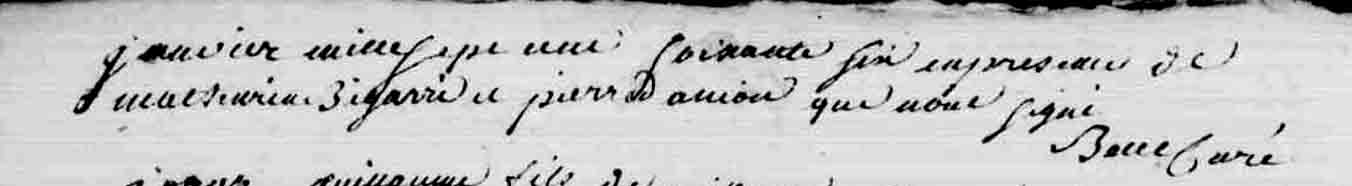 janvier mille sept cent soixante six en presence de
mathurin Bigarré et pierre Danion qui nont signé
Curé
fils de